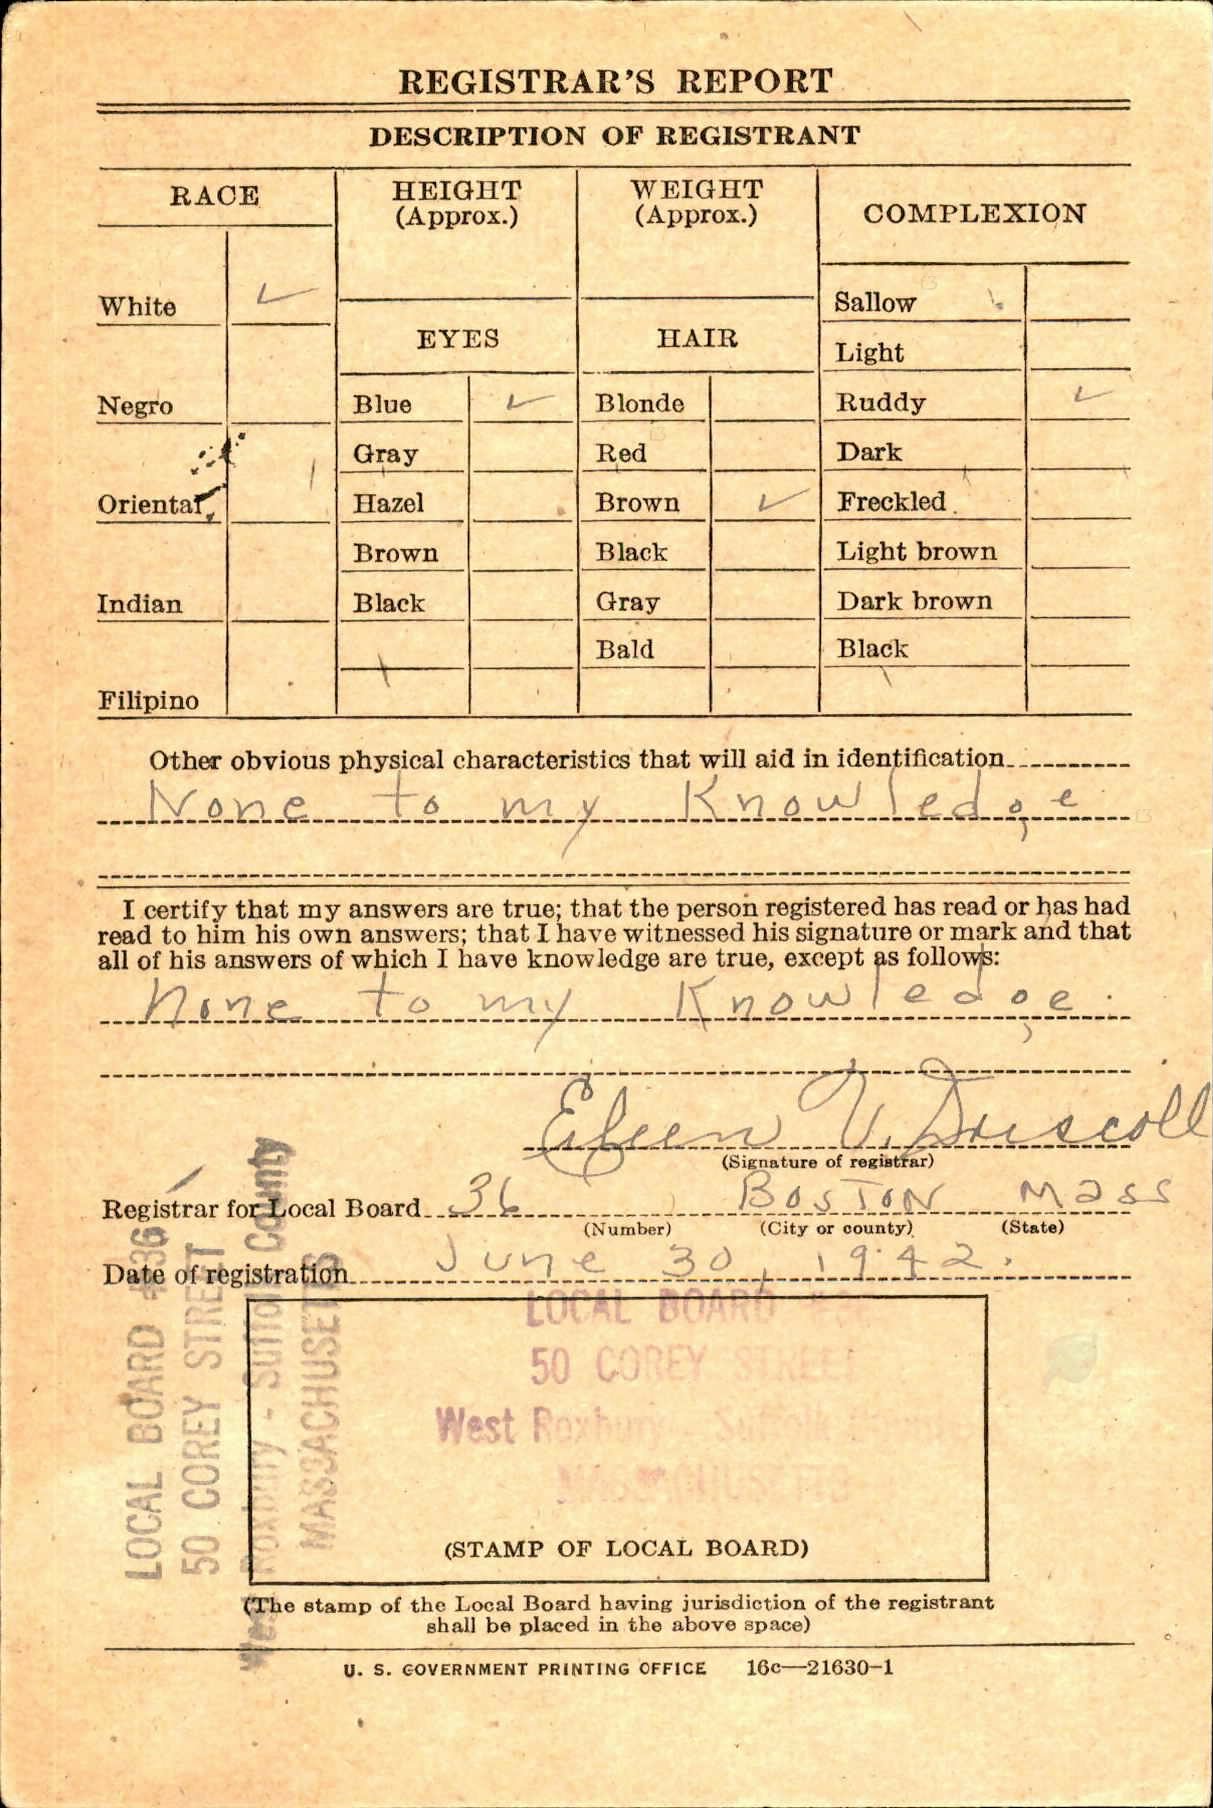 REGISTRAR'S REPORT
DESCRIPTION OF REGISTRANT
RACE
HEIGHT
(Approx.)
WEIGHT
(Approx.)
COMPLEXION
White ✓
Sallow
EYES
HAIR
Light
Negro
Blue ✓
Blonde
Ruddy ✓
Gray
Red
Dark
Oriental
Hazel
Brown ✓
Freckled
Brown
Black
Light brown
Indian
Black
Gray
Dark brown
Bald
Black
Filipino
Other obvious physical characteristics that will aid in identification
None to my Knowledge
I certify that my answers are true; that the person registered has read or has had
read to him his own answers; that I have witnessed his signature or mark and that
all of his answers of which I have knowledge are true, except as follows:
None to my Knowledge.
Eileen V. Driscoll
(Signature of registrar)
Registrar for Local Board 36 Boston Mass
(Number) (City or county) (State)
Date of registration June 30, 1942.
LOCAL BOARD #36
50 COREY STREET
West Roxbury - Suffolk County
MASSACHUSETTS
LOCAL BOARD #36
50 COREY STREET
West Roxbury - Suffolk
MASSACHUSETTS
(STAMP OF LOCAL BOARD)
(The stamp of the Local Board having jurisdiction of the registrant
shall be placed in the above space)
U. S. GOVERNMENT PRINTING OFFICE 16c—21630-1